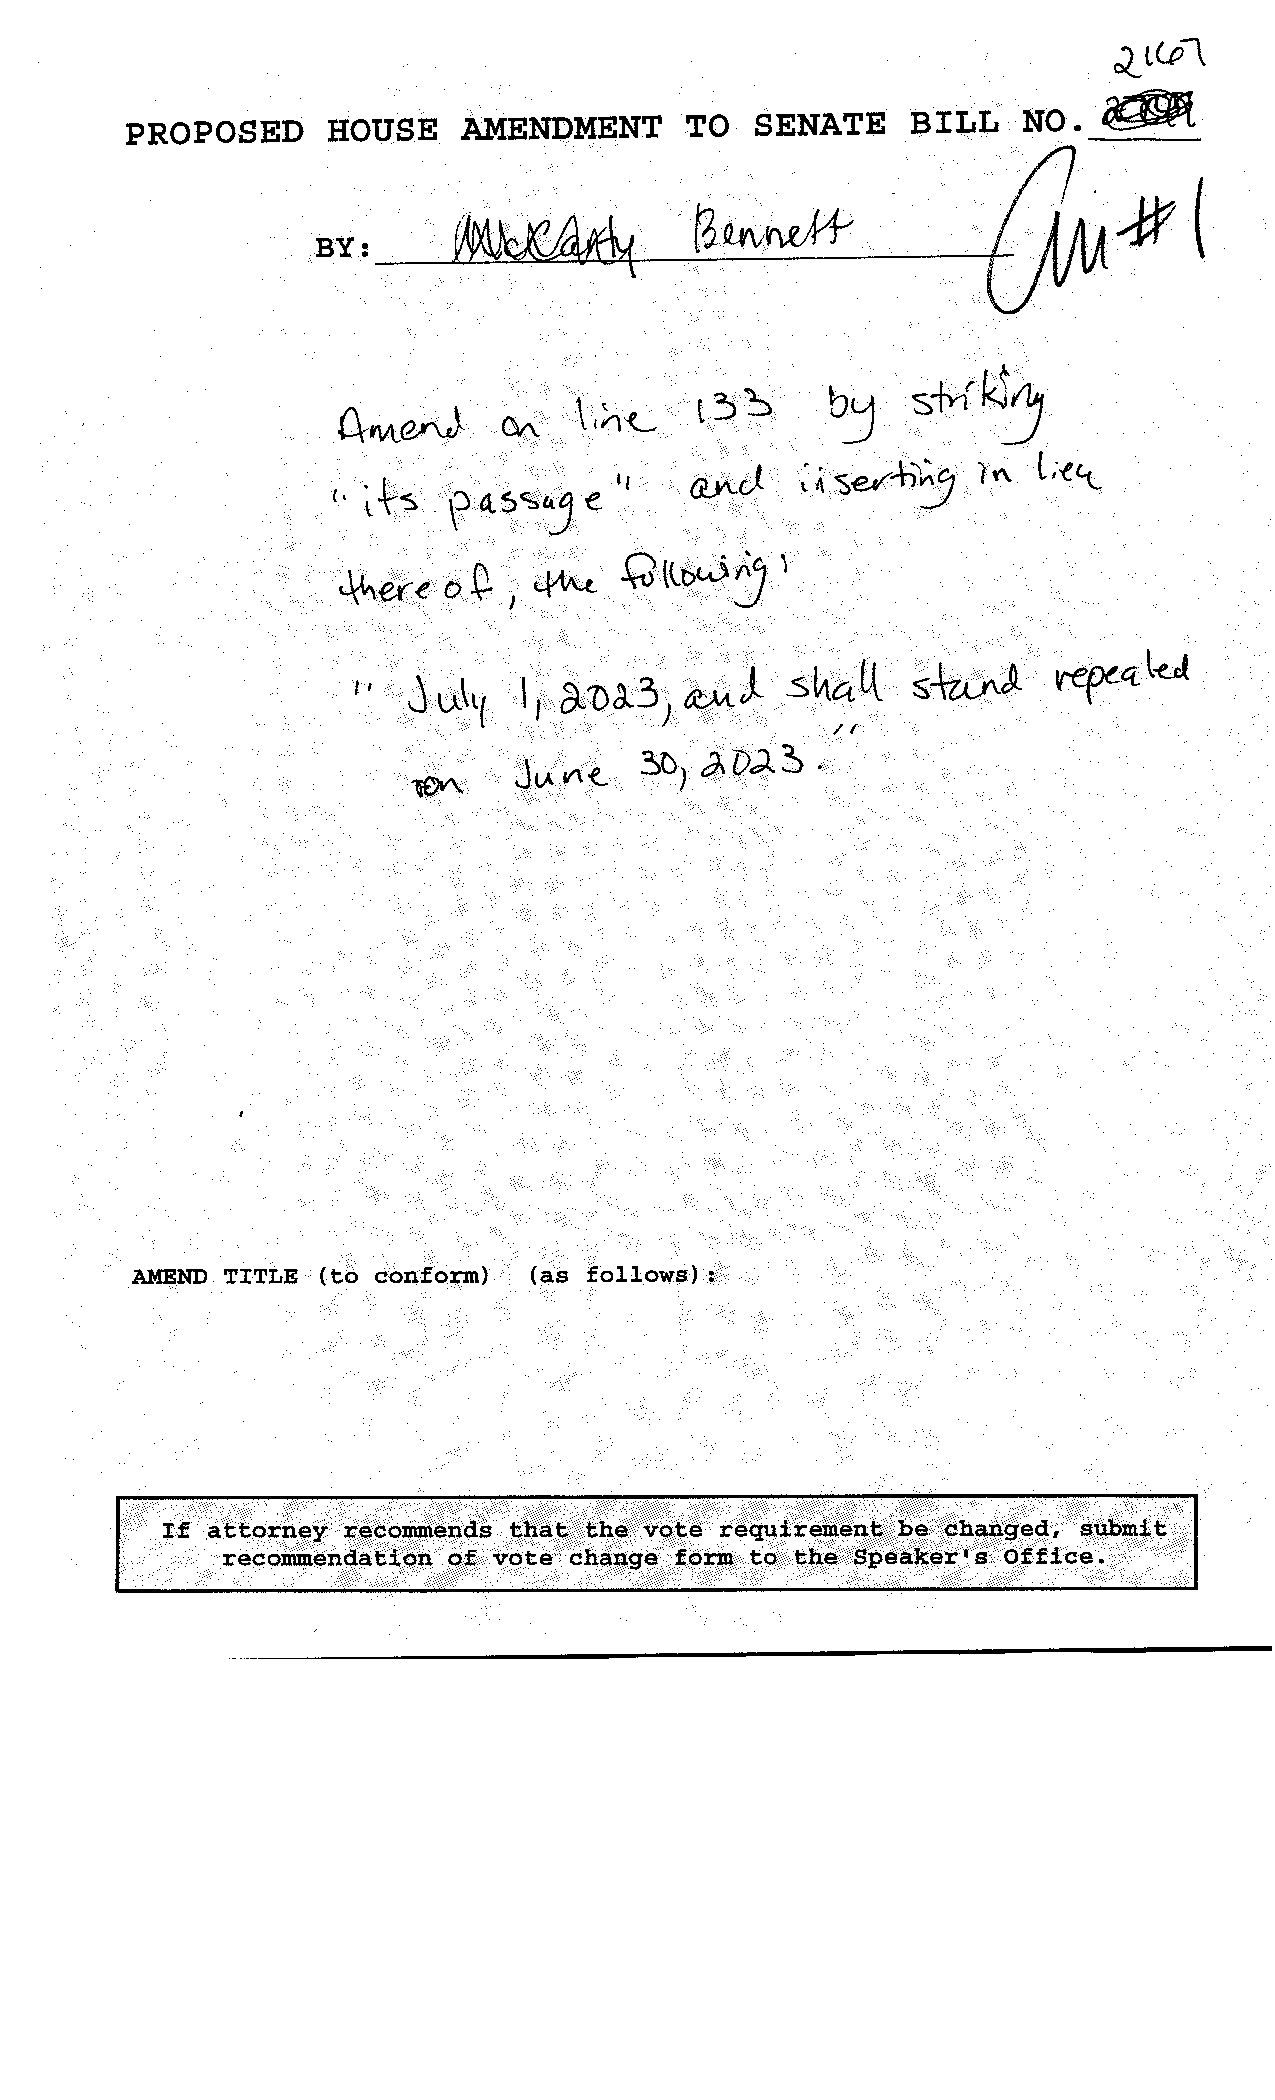 2167
PROPOSED HOUSE AMENDMENT TO SENATE BILL NO.
BY: McCarty Bennett Am #1
Amend on line 133 by striking
"its passage" and inserting in lieu
thereof, the following:
" July 1, 2023, and shall stand repealed
on June 30, 2023."
AMEND TITLE (to conform) (as follows):
If attorney recommends that the vote requirement be changed, submit
recommendation of vote change form to the Speaker's Office.